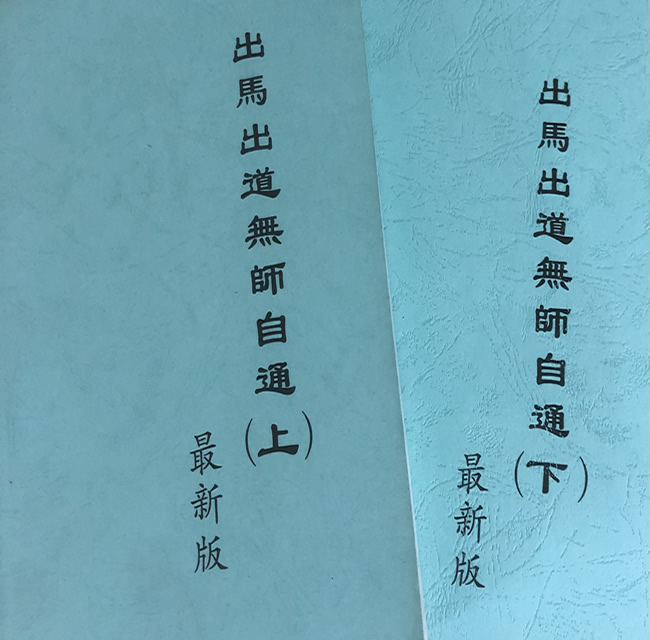 出馬出道無師自通(上)
最新版
出馬出道無師自通(下)
最新版